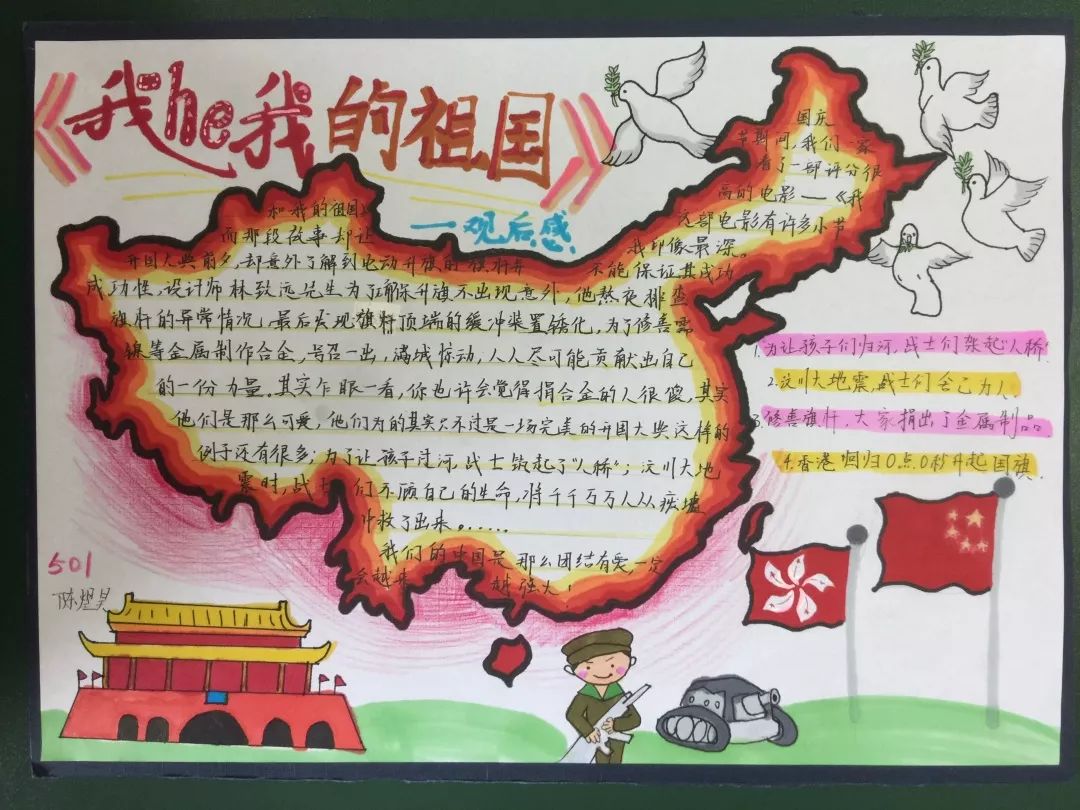 《我he我的祖国》
一观后感
国庆
节期间,我们一家
看了一部评分很
高的电影——《我
和我的祖国》
这部电影有许多小节
而那段故事却让
我印像最深。
开国大典前夕,却意外了解到电动升旗的旗杆并
不能保证其成功
成功性,设计师林致远先生为了确保升旗不出现意外,他熬夜排查
旗杆的异常情况,最后发现旗杆顶端的缓冲装置锈化,为了修善需
镍等金属制作合金,号召一出,满城惊动,人人尽可能贡献出自己
的一份力量。其实乍眼一看,你也许会觉得捐合金的人很傻,其实
他们是那么可爱,他们为的其实只不过是一场完美的开国大典这样的
例子还有很多:为了让孩子过河,战士筑起了“人桥”;汶川大地
震时,战士们不顾自己的生命,将千千万万人从废墟
中救了出来。......
我们的中国是那么团结有爱一定
会越来越强大!
1.为让孩子们归河,战士们架起“人桥”
2.汶川大地震,战士们舍己为人
3.修善旗杆,大家捐出了金属制品.
4.香港回归0点0秒升起国旗.
501
陈煜昊